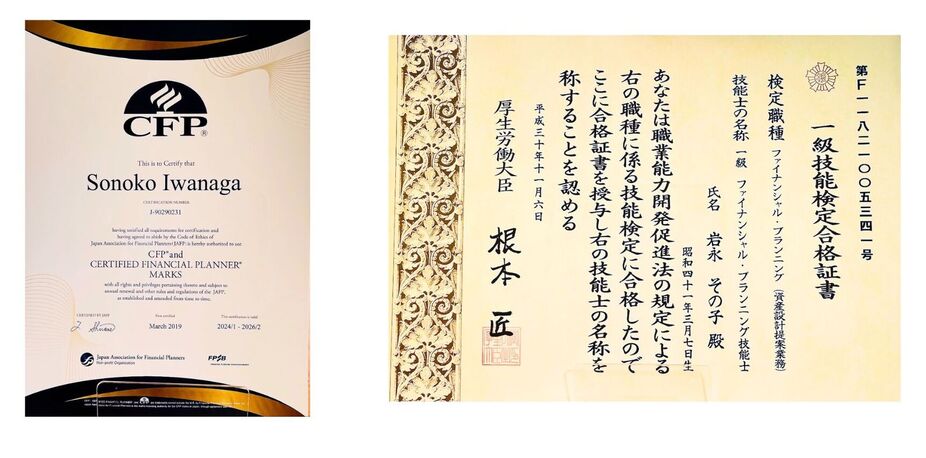 CFP®
This is to Certify that
Sonoko Iwanaga
CERTIFICATION NUMBER
J-90290231
having satisfied all requirements for certification and
having agreed to abide by the Code of Ethics of
Japan Association for Financial Planners(JAFP) is hereby authorized to use
CFP® and
CERTIFIED FINANCIAL PLANNER®
MARKS
with all rights and privileges pertaining thereto and subject to
annual renewal and other rules and regulations of the JAFP,
as established and amended from time to time.
CERTIFIED BY JAFP
First certified
March 2019
This certification is valid
2024/1 - 2026/2
Japan Association for Financial Planners
Non-profit Organization
FPSB
第F一一八二一〇〇五三四一号
一級技能検定合格証書
検定職種 ファイナンシャル・プランニング(資産設計提案業務)
技能士の名称 一級 ファイナンシャル・プランニング技能士
氏名 岩永 その子 殿
昭和四十一年三月七日生
あなたは職業能力開発促進法の規定による
右の職種に係る技能検定に合格したので
ここに合格証書を授与し右の技能士の名称を
称することを認める
平成三十年十一月六日
厚生労働大臣 根本 匠